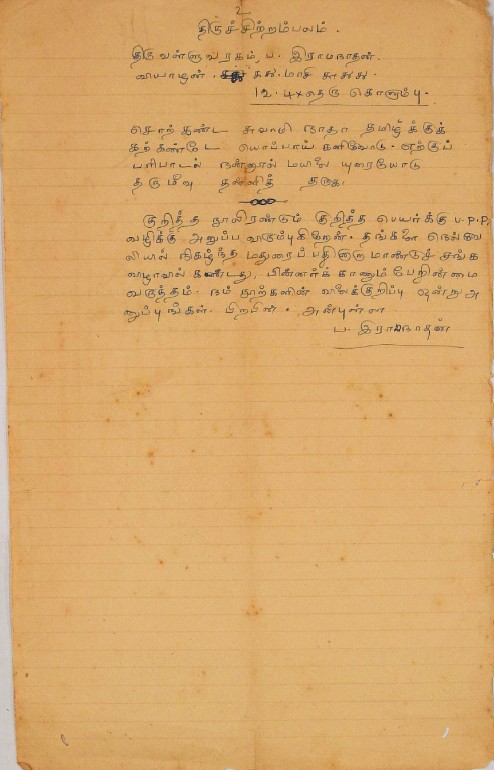 உ
திருச்சிற்றம்பலம்.
திருவள்ளுவரகம், ப. இராமநாதன்.
வியாழன். கக. மாசி
12. 4x தெரு கொளும்பு.
சொற்கண்ட சுவாமி நாதா தமிழ்க்குக்
கற்கண்டே யொப்பாய் கனிவோடு - ஏற்குப்
பரிபாடல் நன்னூல் மயிலை யுரையோடு
தருமீவு தன்னித் தருக.
குறித்த நூலிரண்டும் குறித்த பெயர்க்கு v.p.p,
வழிக்கு அனுப்ப வரும்புகிறேன். தங்களை நெல்வே
லியில் நிகழ்ந்த மதுரைப் பதினாறாமாண்டுச் சங்க
விழாவில் கண்டது, பின்னர்க் காணும் பேறின்மை
வருத்தம். நம் நூற்களின் விலைக்குறிப்பு ஒன்று அ
னுப்புங்கள். பிறபின். அன்புள்ள
ப. இராமநாதன்